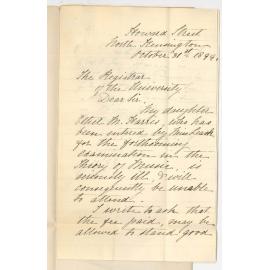 Howard Street
North Kensington
October 31st 1899.
The Registrar
of the University
Dear Sir.
My daughter
Ethel M. Harris, who has
been entered by Miss
for the forthcoming
examination in the
theory of Music, is
seriously ill, & will
consequently be unable
to attend.
I write to ask that
the fee paid, may be
allowed to stand good